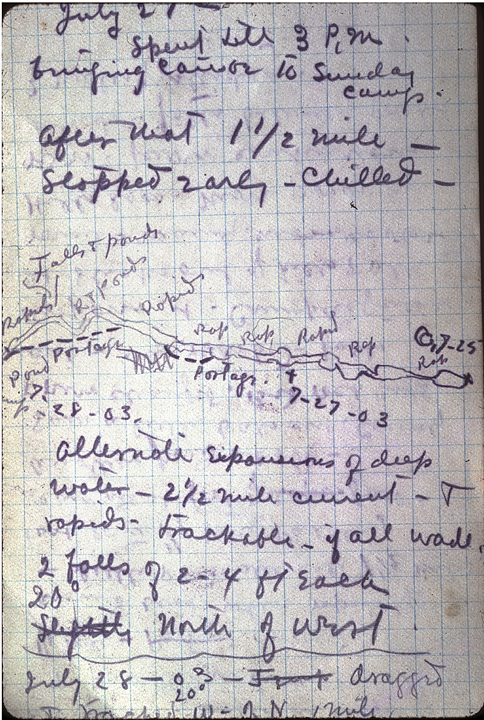 July 27 —
Spent till 3 P.M.
bringing canoe to Sunday
camp.
After that 1 1/2 mile —
Stopped early - Chilled —
Falls & ponds
Rapids R & Ponds Rapids
Rap Rap Rapid Rap Rap
C, 7-25
Portage
Portage. 7-27-03
Pond
7.
28-03.
Alternate expansions of deep
water - 2 1/2 mile current - &
rapids - Trackable - if all wade.
2 falls of 2-4 ft each
20°
North of West
July 28 - 03 - dragged
20°
& tracked W - of N. 1 mile